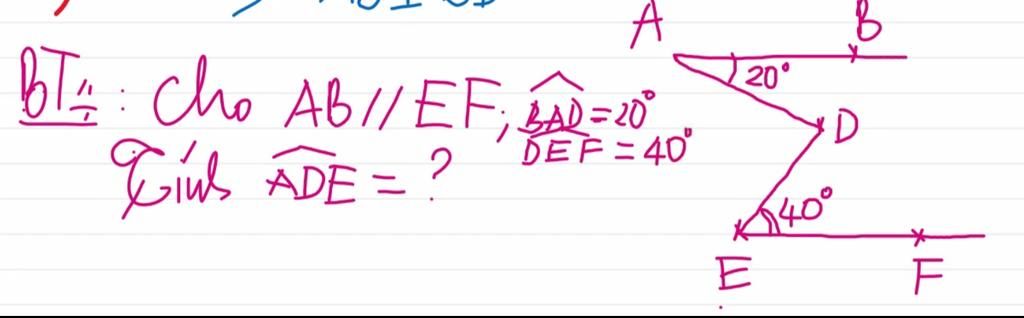 BT: Cho AB // EF; BAD = 20°
DEF = 40°
Tính ADE = ?
A
B
20°
D
40°
E
F